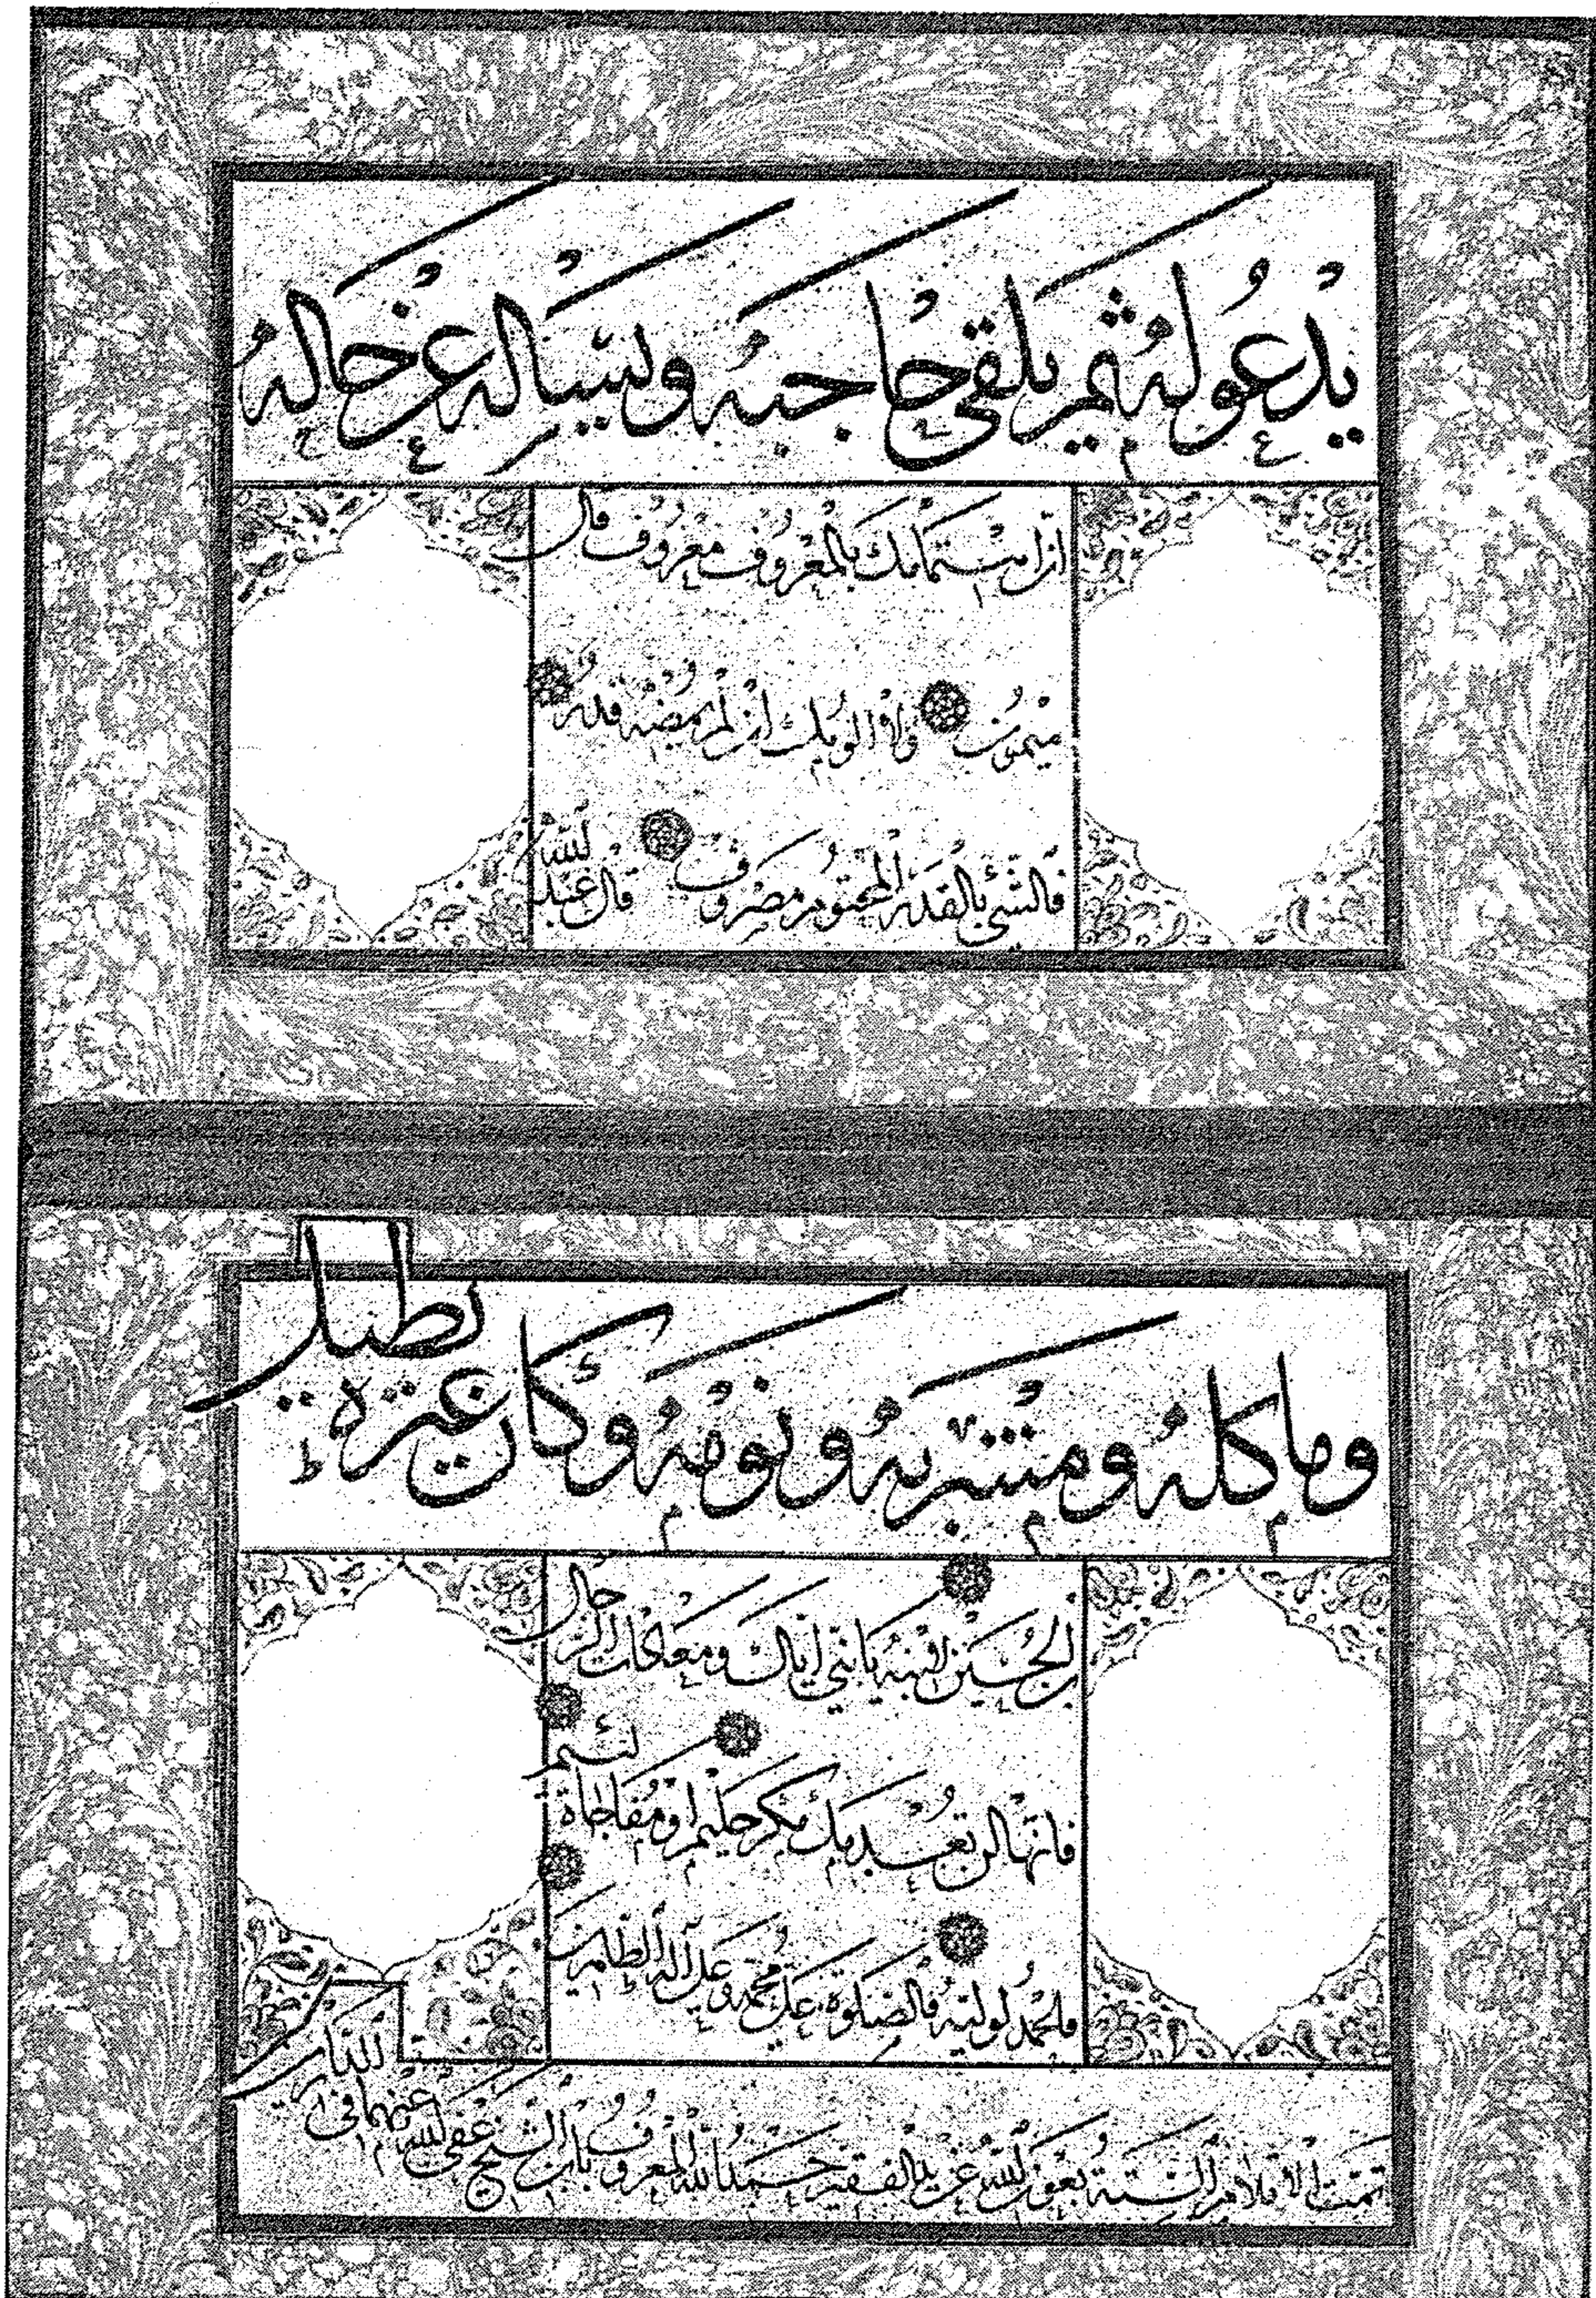 يدعو له ثم يلقى حاجبه ويساله عن حاله
ان اهتمامك بالمعروف معروف قال
ميمون ولا الومك ان لم يمضه قدر
فالشئ بالقدر المحتوم مصروف قال عبد الله
وماكله ومشربه ونومه وكان غيره نظير
بن الحسين لابنه يا بني اياك ومعادات الرجال
فانها لن تعدمك مكر حليم او مفاجاة لئيم
فالحمد لوليه والصلوة على محمد وعلى آله الطاهرين
تمت الاقلام الستة بعون الله عن يد الفقير حمد الله المعروف بابن الشيخ عفى الله عنهما فى الدارين